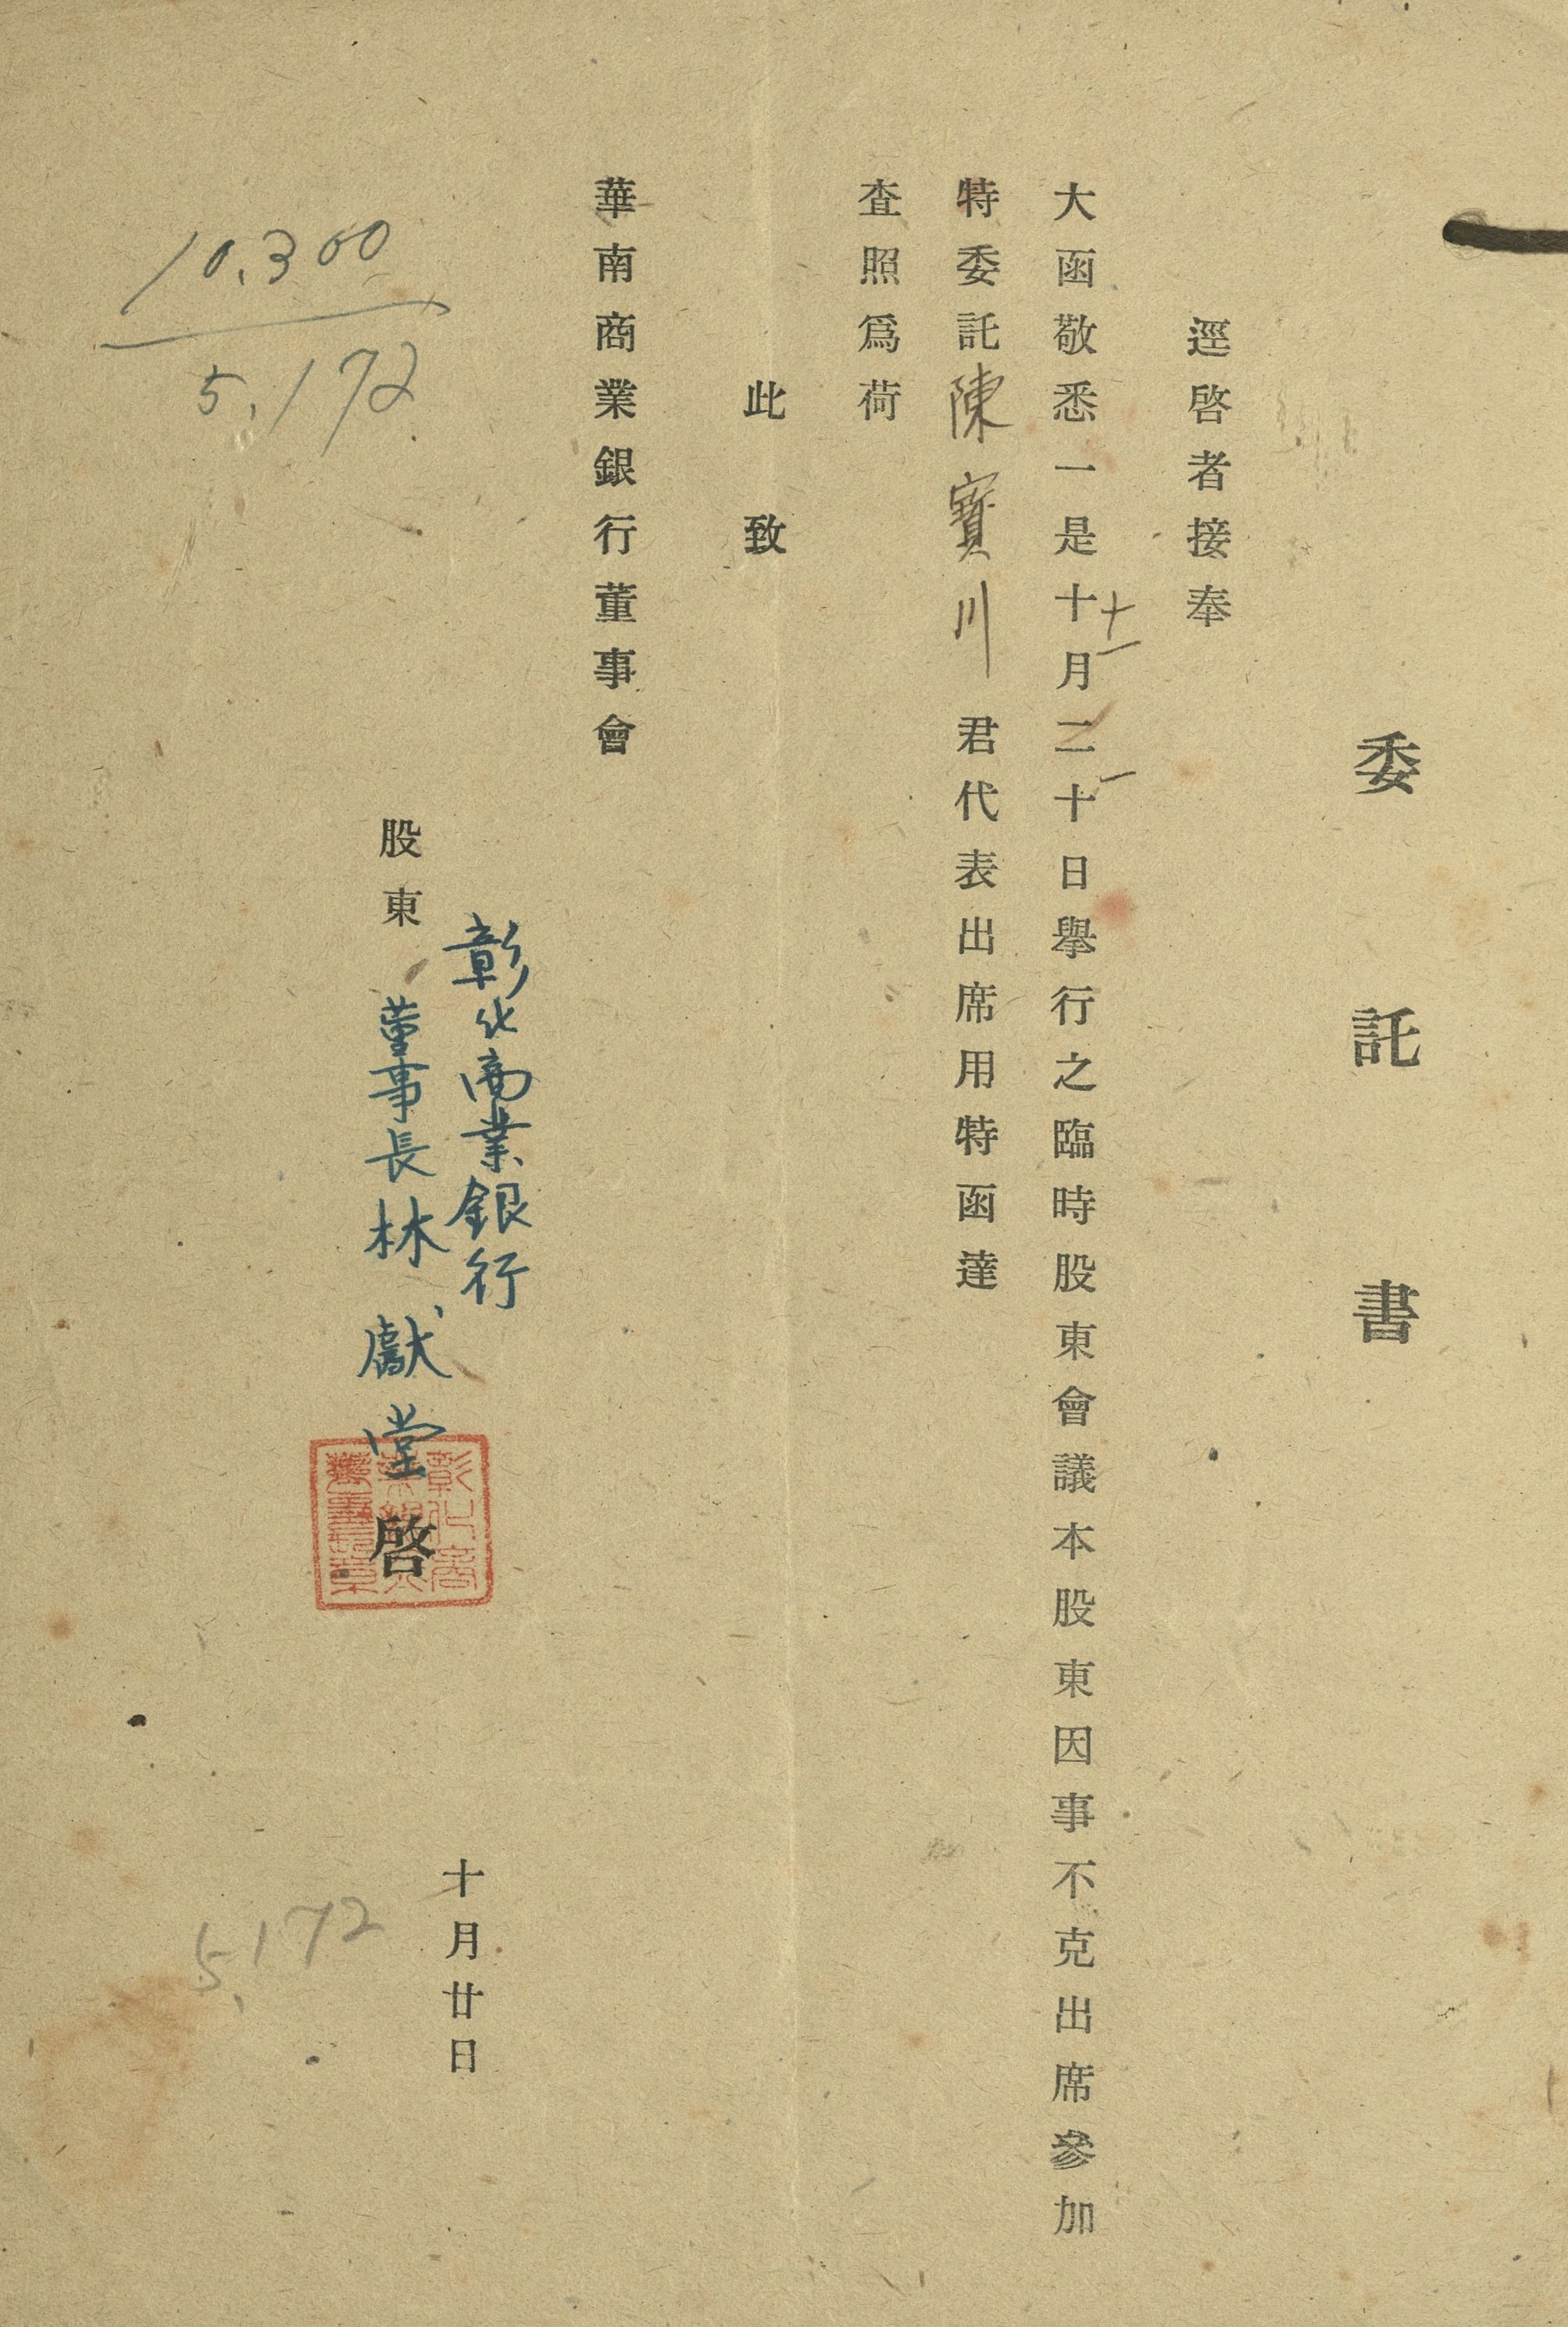 委託書
逕啓者接奉
大函敬悉一是十月二十日舉行之臨時股東會議本股東因事不克出席參加
十一
一
特委託陳寶川君代表出席用特函達
査照爲荷
此致
華南商業銀行董事會
彰化商業銀行
股東 董事長林獻堂 啓
十月廿日
10,300
5,172
5,172